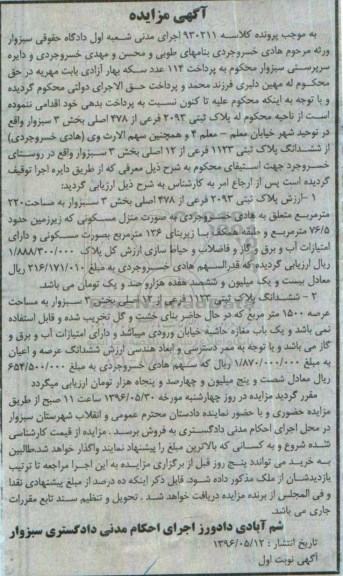 آگهی مزایده
به موجب پرونده کلاسه ۹۳۰۲۱۱ اجرای مدنی شعبه اول دادگاه حقوقی سبزوار
ورثه مرحوم هادی خسروجردی بنامهای طوبی و محسن و مهدی خسروجردی و دایره
سرپرستی سبزوار محکوم به پرداخت ۱۱۴ عدد سکه بهار آزادی بابت مهریه در حق
محکوم له مهین دلبری فرزند محمد و پرداخت حق الاجرای دولتی محکوم گردیده
و با توجه به اینکه محکوم علیه تا کنون نسبت به پرداخت بدهی خود اقدامی ننموده
است از ناحیه محکوم له پلاک ثبتی ۲۰۹۳ فرعی از ۴۷۸ اصلی بخش ۳ سبزوار واقع
در توحید شهر خیابان معلم - معلم ۴ و همچنین سهم الارث وی (هادی خسروجردی)
از ششدانگ پلاک ثبتی ۱۱۲۳ فرعی از ۱۲ اصلی بخش ۳ سبزوار واقع در روستای
خسروجرد جهت استیفای محکوم به شرح ذیل معرفی که از طریق دایره اجرا توقیف
گردیده است پس از ارجاع امر به کارشناس به شرح ذیل ارزیابی گردید:
۱ - ارزش پلاک ثبتی ۲۰۹۳ فرعی از ۴۷۸ اصلی بخش ۳ سبزوار به مساحت ۲۲۰
مترمربع متعلق به هادی خسروجردی به صورت منزل مسکونی که زیرزمین حدود
۷۶/۵ مترمربع و طبقه همکف با زیربنای ۱۳۶ مترمربع بصورت مسکونی و دارای
امتیازات آب و برق و گاز و فاضلاب و حیاط سازی ارزش کل پلاک ۱/۸۸۸/۳۰۰/۰۰۰
ریال ارزیابی گردیده که قدرالسهم هادی خسروجردی به مبلغ ۲۱۶/۱۷۱/۰۱۰ ریال
معادل بیست و یک میلیون و ششصد هفده هزار و صد و یک تومان می باشد.
۲ - ششدانگ پلاک ثبتی ۱۱۲۳ فرعی از ۱۲ اصلی بخش ۳ سبزوار به مساحت
عرصه ۱۵۰۰ متر مربع که در حال حاضر بنای خشت و گل تخریب شده و قابل استفاده
نمی باشد و یک باب مغازه حاشیه خیابان ورودی میباشد و دارای امتیازات آب و برق و
گاز می باشد و با توجه به ممر دسترسی و ابعاد هندسی ارزش ششدانگ عرصه و اعیان
به مبلغ ۱/۸۷۰/۰۰۰/۰۰۰ ریال که سهم هادی خسروجردی به مبلغ ۶۵۴/۵۰۰/۰۰۰
ریال معادل شصت و پنج میلیون و چهارصد و پنجاه هزار تومان ارزیابی میگردد
مقرر گردید مزایده در روز چهارشنبه مورخه ۱۳۹۶/۰۵/۳۰ ساعت ۱۱ صبح از طریق
مزایده حضوری و با حضور نماینده دادستان محترم عمومی و انقلاب شهرستان سبزوار
در محل اجرای احکام مدنی دادگستری به فروش برسد . مزایده از قیمت کارشناسی
شده شروع و به کسانی که بالاترین مبلغ را پیشنهاد نمایند واگذار خواهد شد.طالبین
به خرید می توانند پنج روز قبل از برگزاری مزایده به این اجرا مراجعه تا ترتیب
بازدیدشان از ملک مذکور داده شود. قابل ذکر اینکه ده درصد از مبلغ پیشنهادی نقدا
و فی المجلس از برنده مزایده دریافت خواهد شد . تحویل و تنظیم سند تابع مقررات
جاری می باشد.
شم آبادی دادورز اجرای احکام مدنی دادگستری سبزوار
تاریخ انتشار : ۱۳۹۶/۰۵/۱۲
آگهی نوبت اول